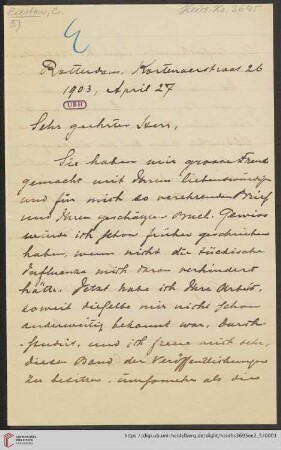 Heid. Hs. 3695
5)
Rotterdam, Kortenaerstraat 26
1903, April 27
UBH
Sehr geehrter Herr,
Sie haben mir grosse Freude
gemacht mit Ihrem liebenswürdigen
und für mich so verehrenden Brief
und Ihrem geschätzten Buch. Gewiss
würde ich schon früher geschrieben
haben, wenn nicht die tückische
Influenza mich daran verhindert
hätte. Jetzt habe ich Ihre Arbeit,
soweit dieselbe mir nicht schon
anderweitig bekannt war, durch-
studirt, und ich freue mich sehr,
diesen Band der Veröffentlichungen
zu besitzen, umsomehr als die
UNIVERSITÄTS-
BIBLIOTHEK
HEIDELBERG